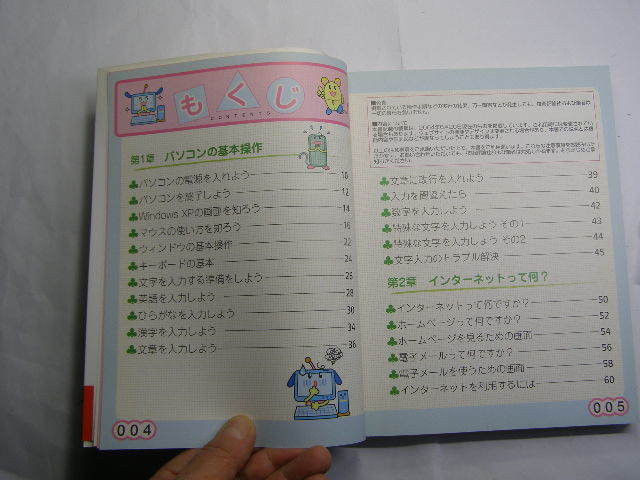 もくじ
CONTENTS
第1章 パソコンの基本操作
パソコンの電源を入れよう 10
パソコンを終了しよう 12
Windows XPの画面を知ろう 14
マウスの使い方を知ろう 16
ウィンドウの基本操作 22
キーボードの基本 24
文字を入力する準備をしよう 26
英語を入力しよう 28
ひらがなを入力しよう 30
漢字を入力しよう 34
文章を入力しよう 36
004
文章に改行を入れよう 39
入力を間違えたら 40
数字を入力しよう 42
特殊な文字を入力しよう その1 43
特殊な文字を入力しよう その2 44
文字入力のトラブル解決 45
第2章 インターネットって何？
インターネットって何ですか？ 50
ホームページって何ですか？ 52
ホームページを見るための画面 54
電子メールって何ですか？ 56
電子メールを使うための画面 58
インターネットを利用するには 60
005